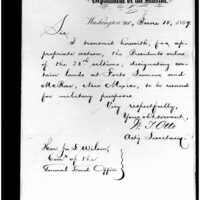 Department of the Interior
Washington DC. June 10, 1869.
Sir
I transmit herewith, for
appropriate action, the President's order
of the 28th ultimo, designating cer-
tain lands at Forts Sumner and
McRae, New Mexico, to be reserved
for military purposes.
Very respectfully,
Your obt servant,
W. T. Otto
Actg Secretary
Hon. Jos. S. Wilson,
Comr of the
General Land Office